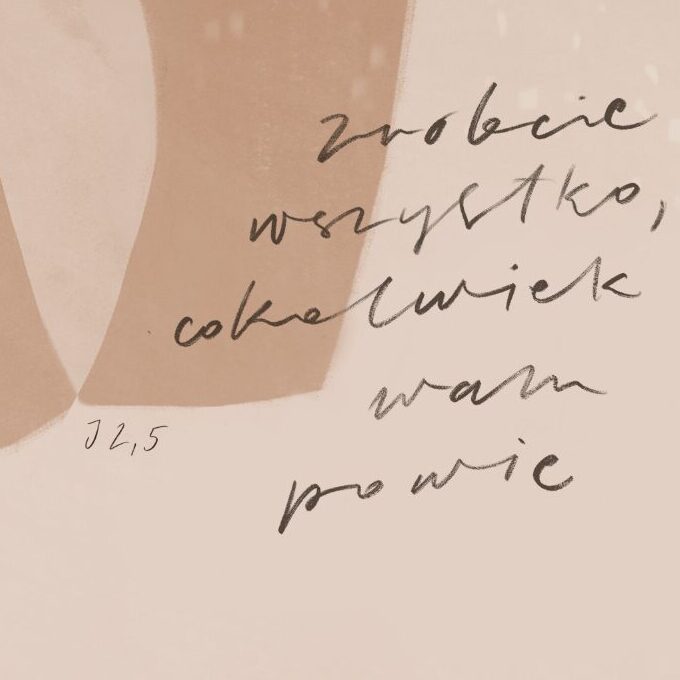 zrobcie
wszystko,
cokolwiek
wam
powie
J 2,5